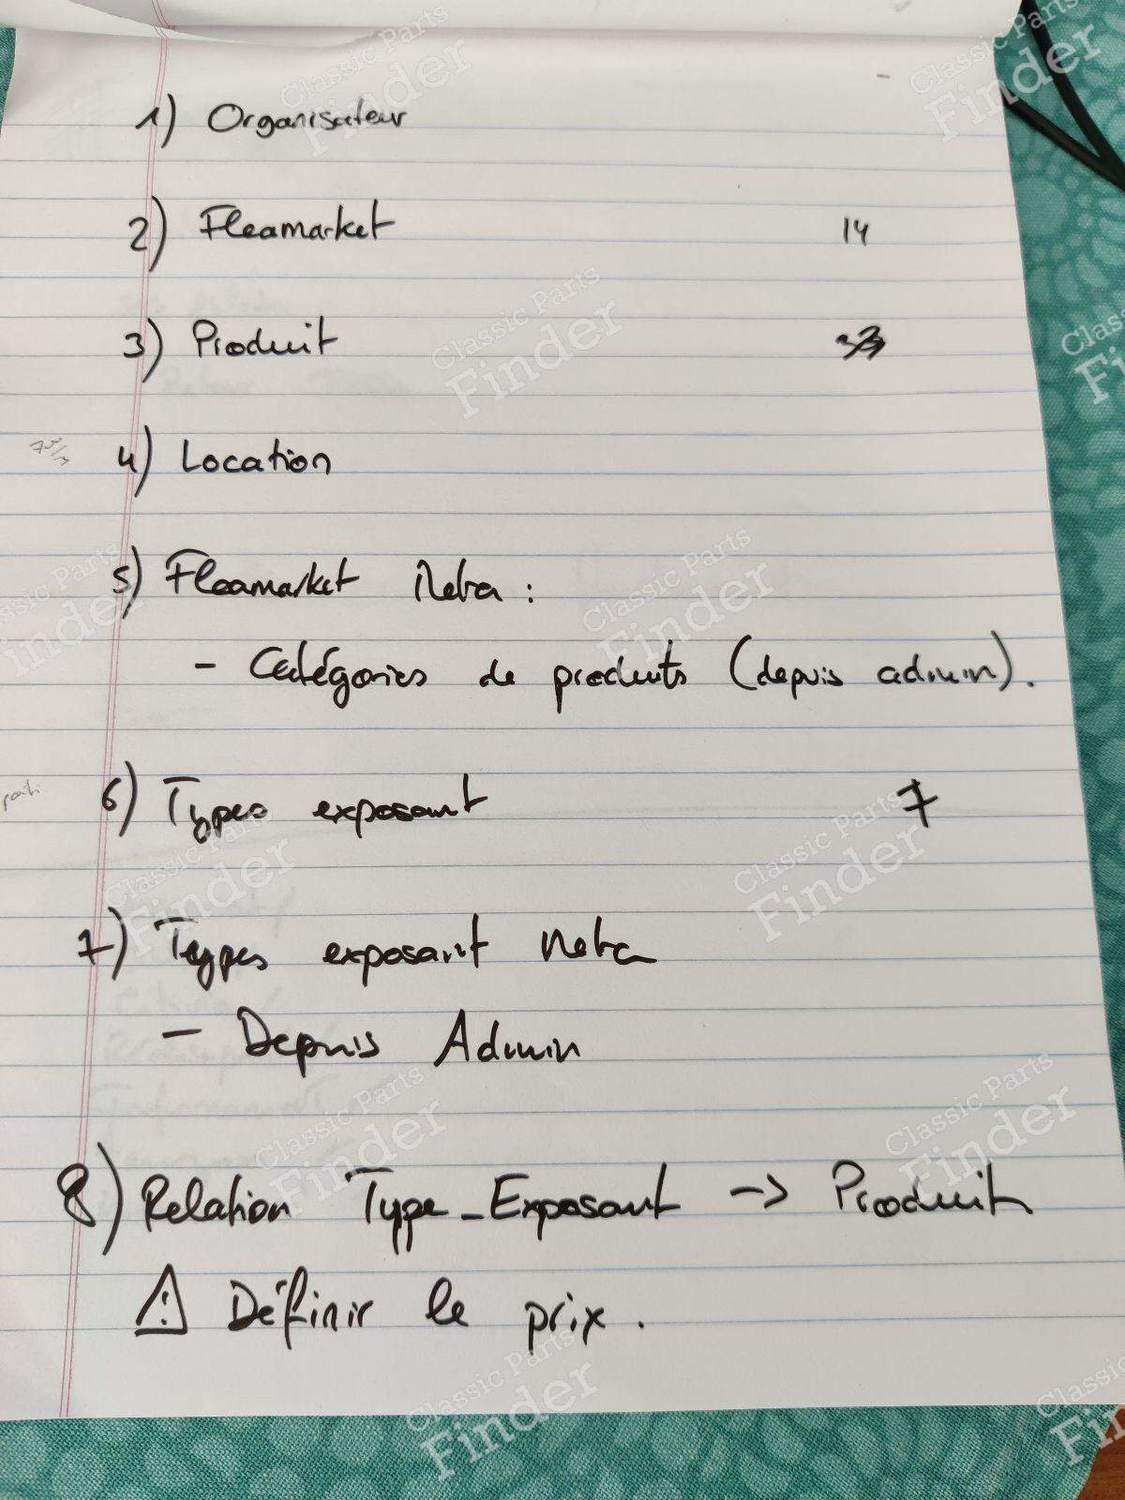 1) Organisateur
2) Fleamarket 14
3) Produit
4) Location
5) Fleamarket Meta :
- Catégories de produits (depuis admin).
6) Types exposant 7
7) Types exposant Meta
- Depuis Admin
8) Relation Type_Exposant -> Produit
⚠ Définir le prix.
Classic Parts
Finder